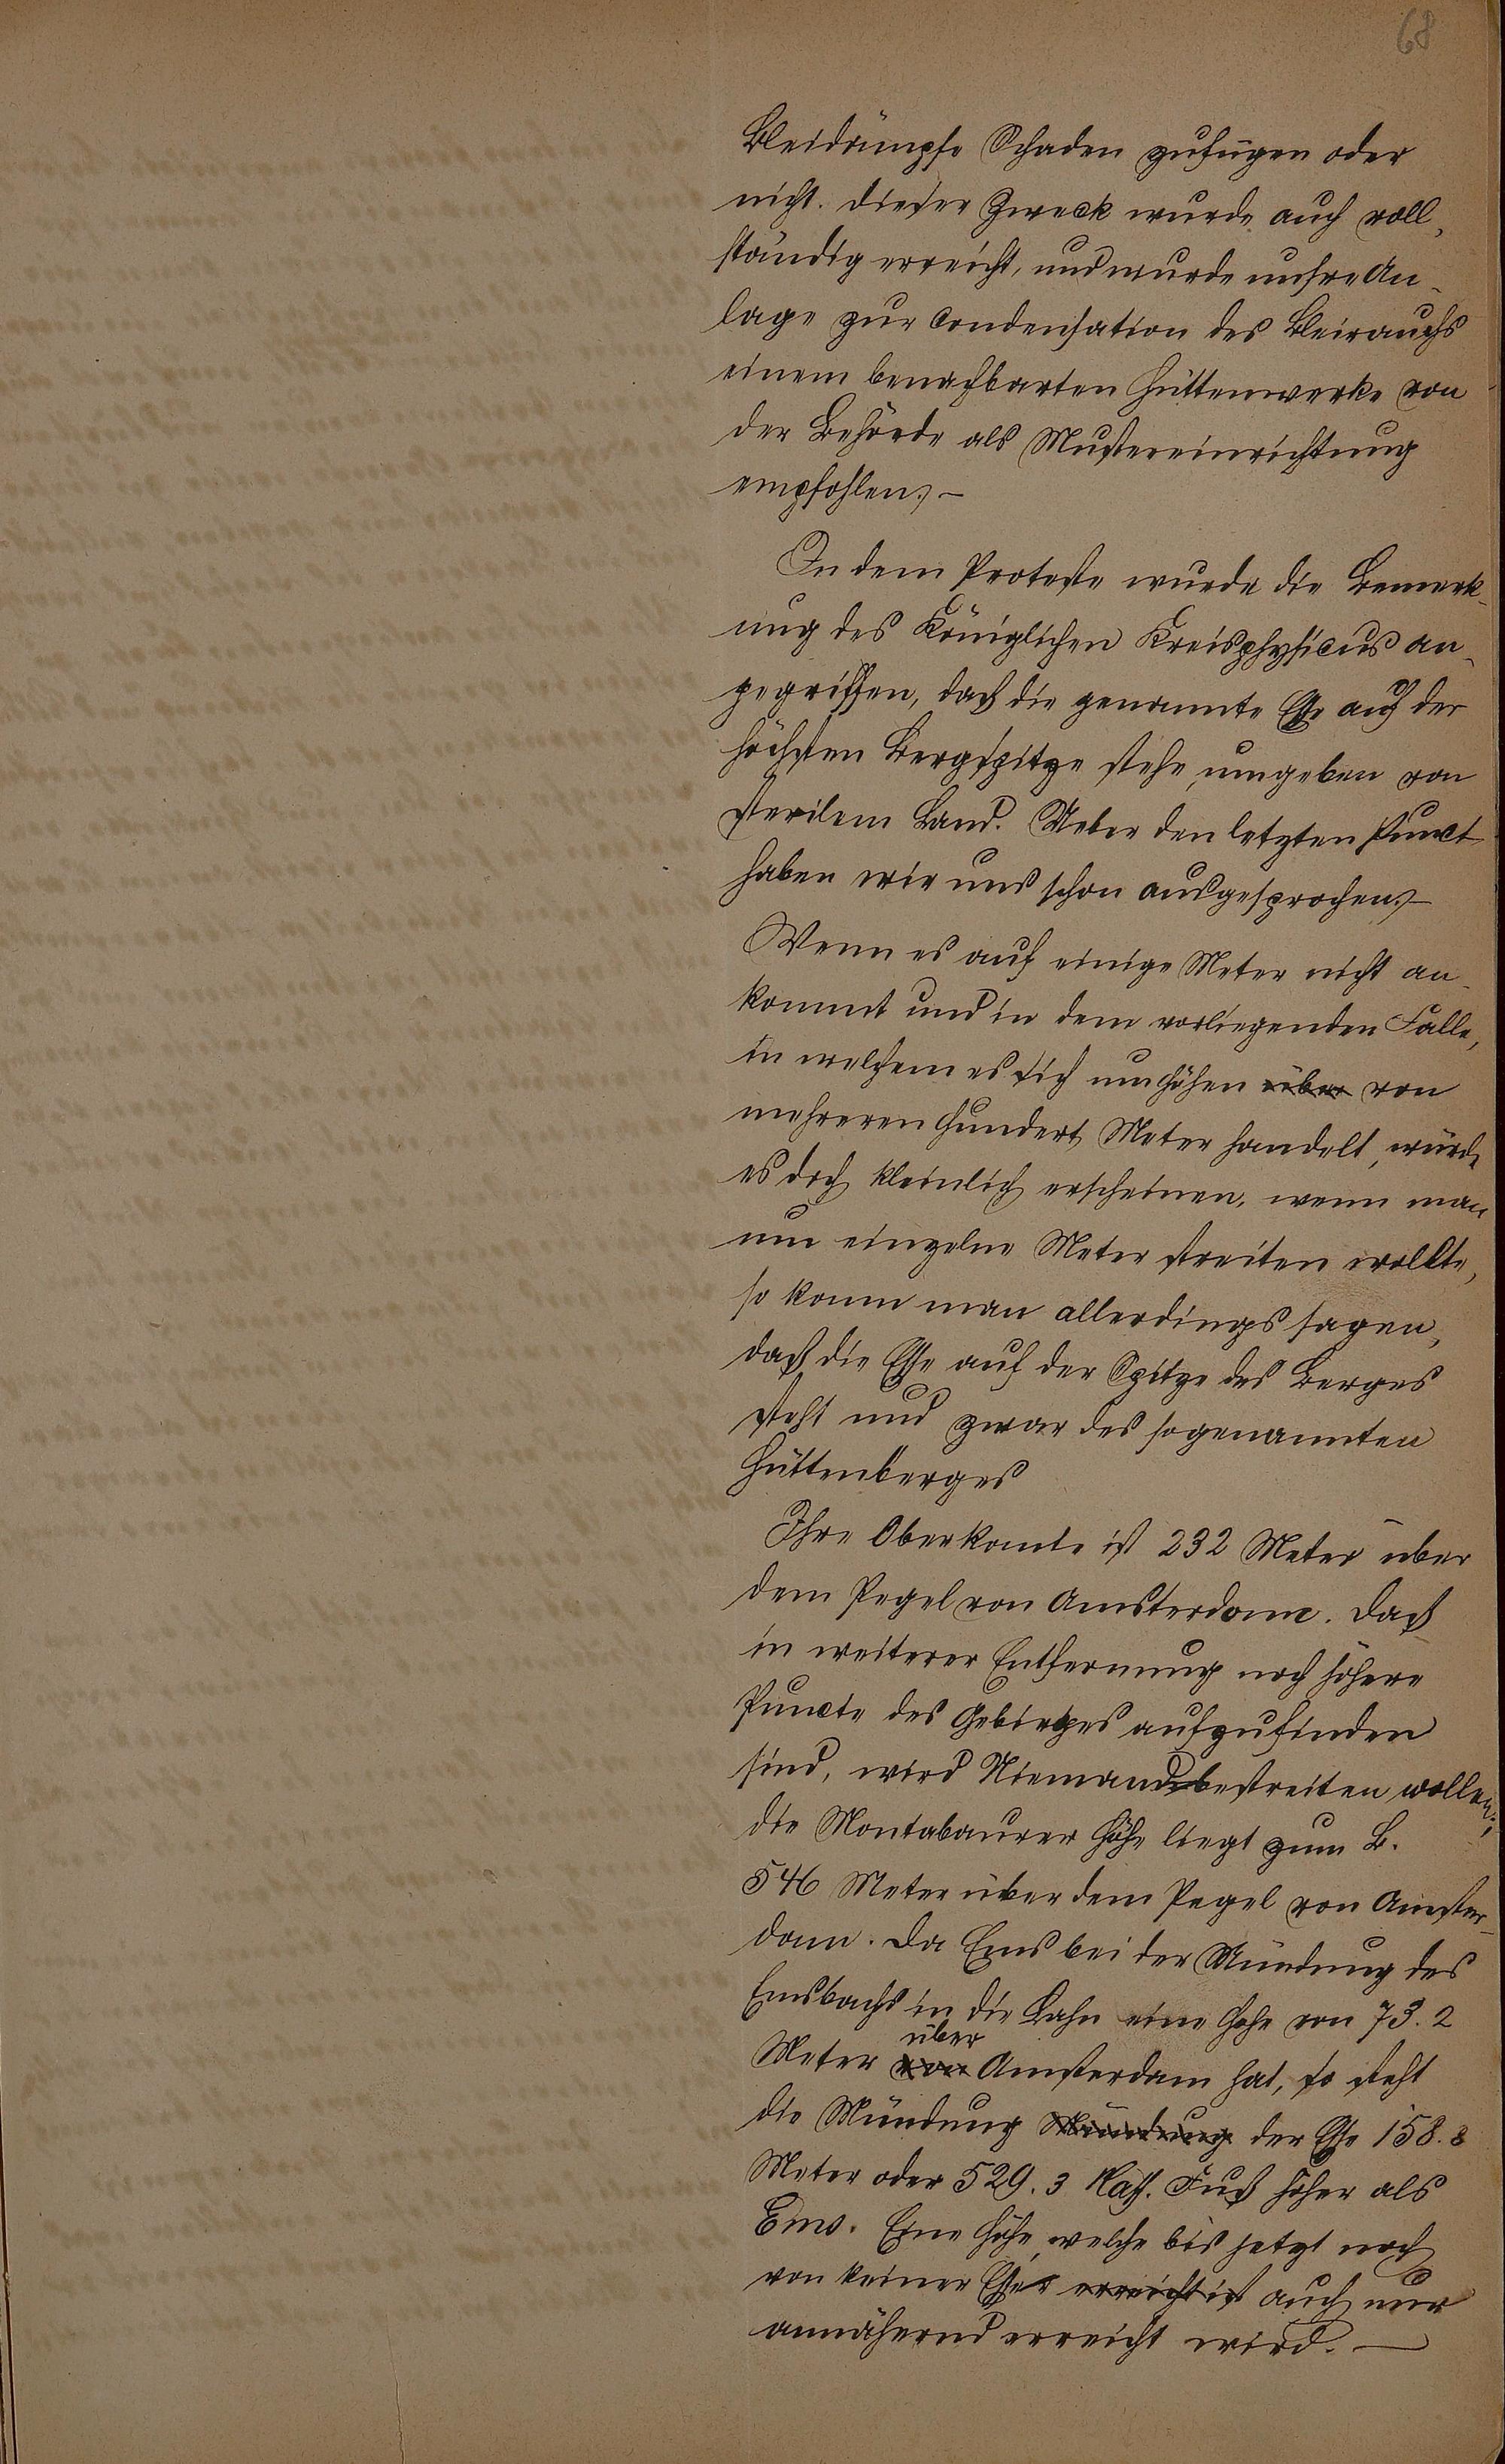 68
Bleidämpfe Schaden zufügen oder
nicht. Dieser Zweck wurde auch voll¬
ständig erreicht, und wurde unsre An¬
lage zur Condensation des Bleirauchs
einem benachbarten Hüttenwerke von
der Behörde als Mustereinrichtung
empfohlen. –
In dem Proteste wurde die Bemerk¬
ung des Königlichen Kreisphysicus an¬
gegriffen, daß die genannte Esse auf der
höchsten Bergspitze stehe, umgeben von
sterilem Land. Ueber den letzten Punct
haben wir uns schon ausgesprochen. –
Wenn es auf einige Meter nicht an¬
kommt und in dem vorliegenden Falle,
in welchem es sich um Höhen über von
mehreren Hundert Meter handelt, würde
es doch kleinlich erscheinen, wenn man
um einzelne Meter streiten wollte,
so kann man allerdings sagen,
daß die Esse auf der Spitze des Berges
steht und zwar des sogenannten
Hüttenberges
Ihre Oberkante ist 232 Meter über
dem Pegel von Amsterdam. Daß
in weiterer Entfernung noch höhere
Puncte des Gebirges aufzufinden
sind, wird Niemand bestreiten wollen;
die Montabaurer Höhe liegt zum B.
546 Meter über dem Pegel von Amster¬
dam. Da Ems bei der Mündung des
Emsbachs in die Lahn eine Höhe von 73.2
über
Meter von Amsterdam hat, so steht
die Mündung Mündung der Esse 158.8
Meter oder 529.3 Nass. Fuß höher als
Ems. Eine Höhe, welche bis jetzt noch
von keiner Esse erreicht ist auch nur
annähernd erreicht wird. –